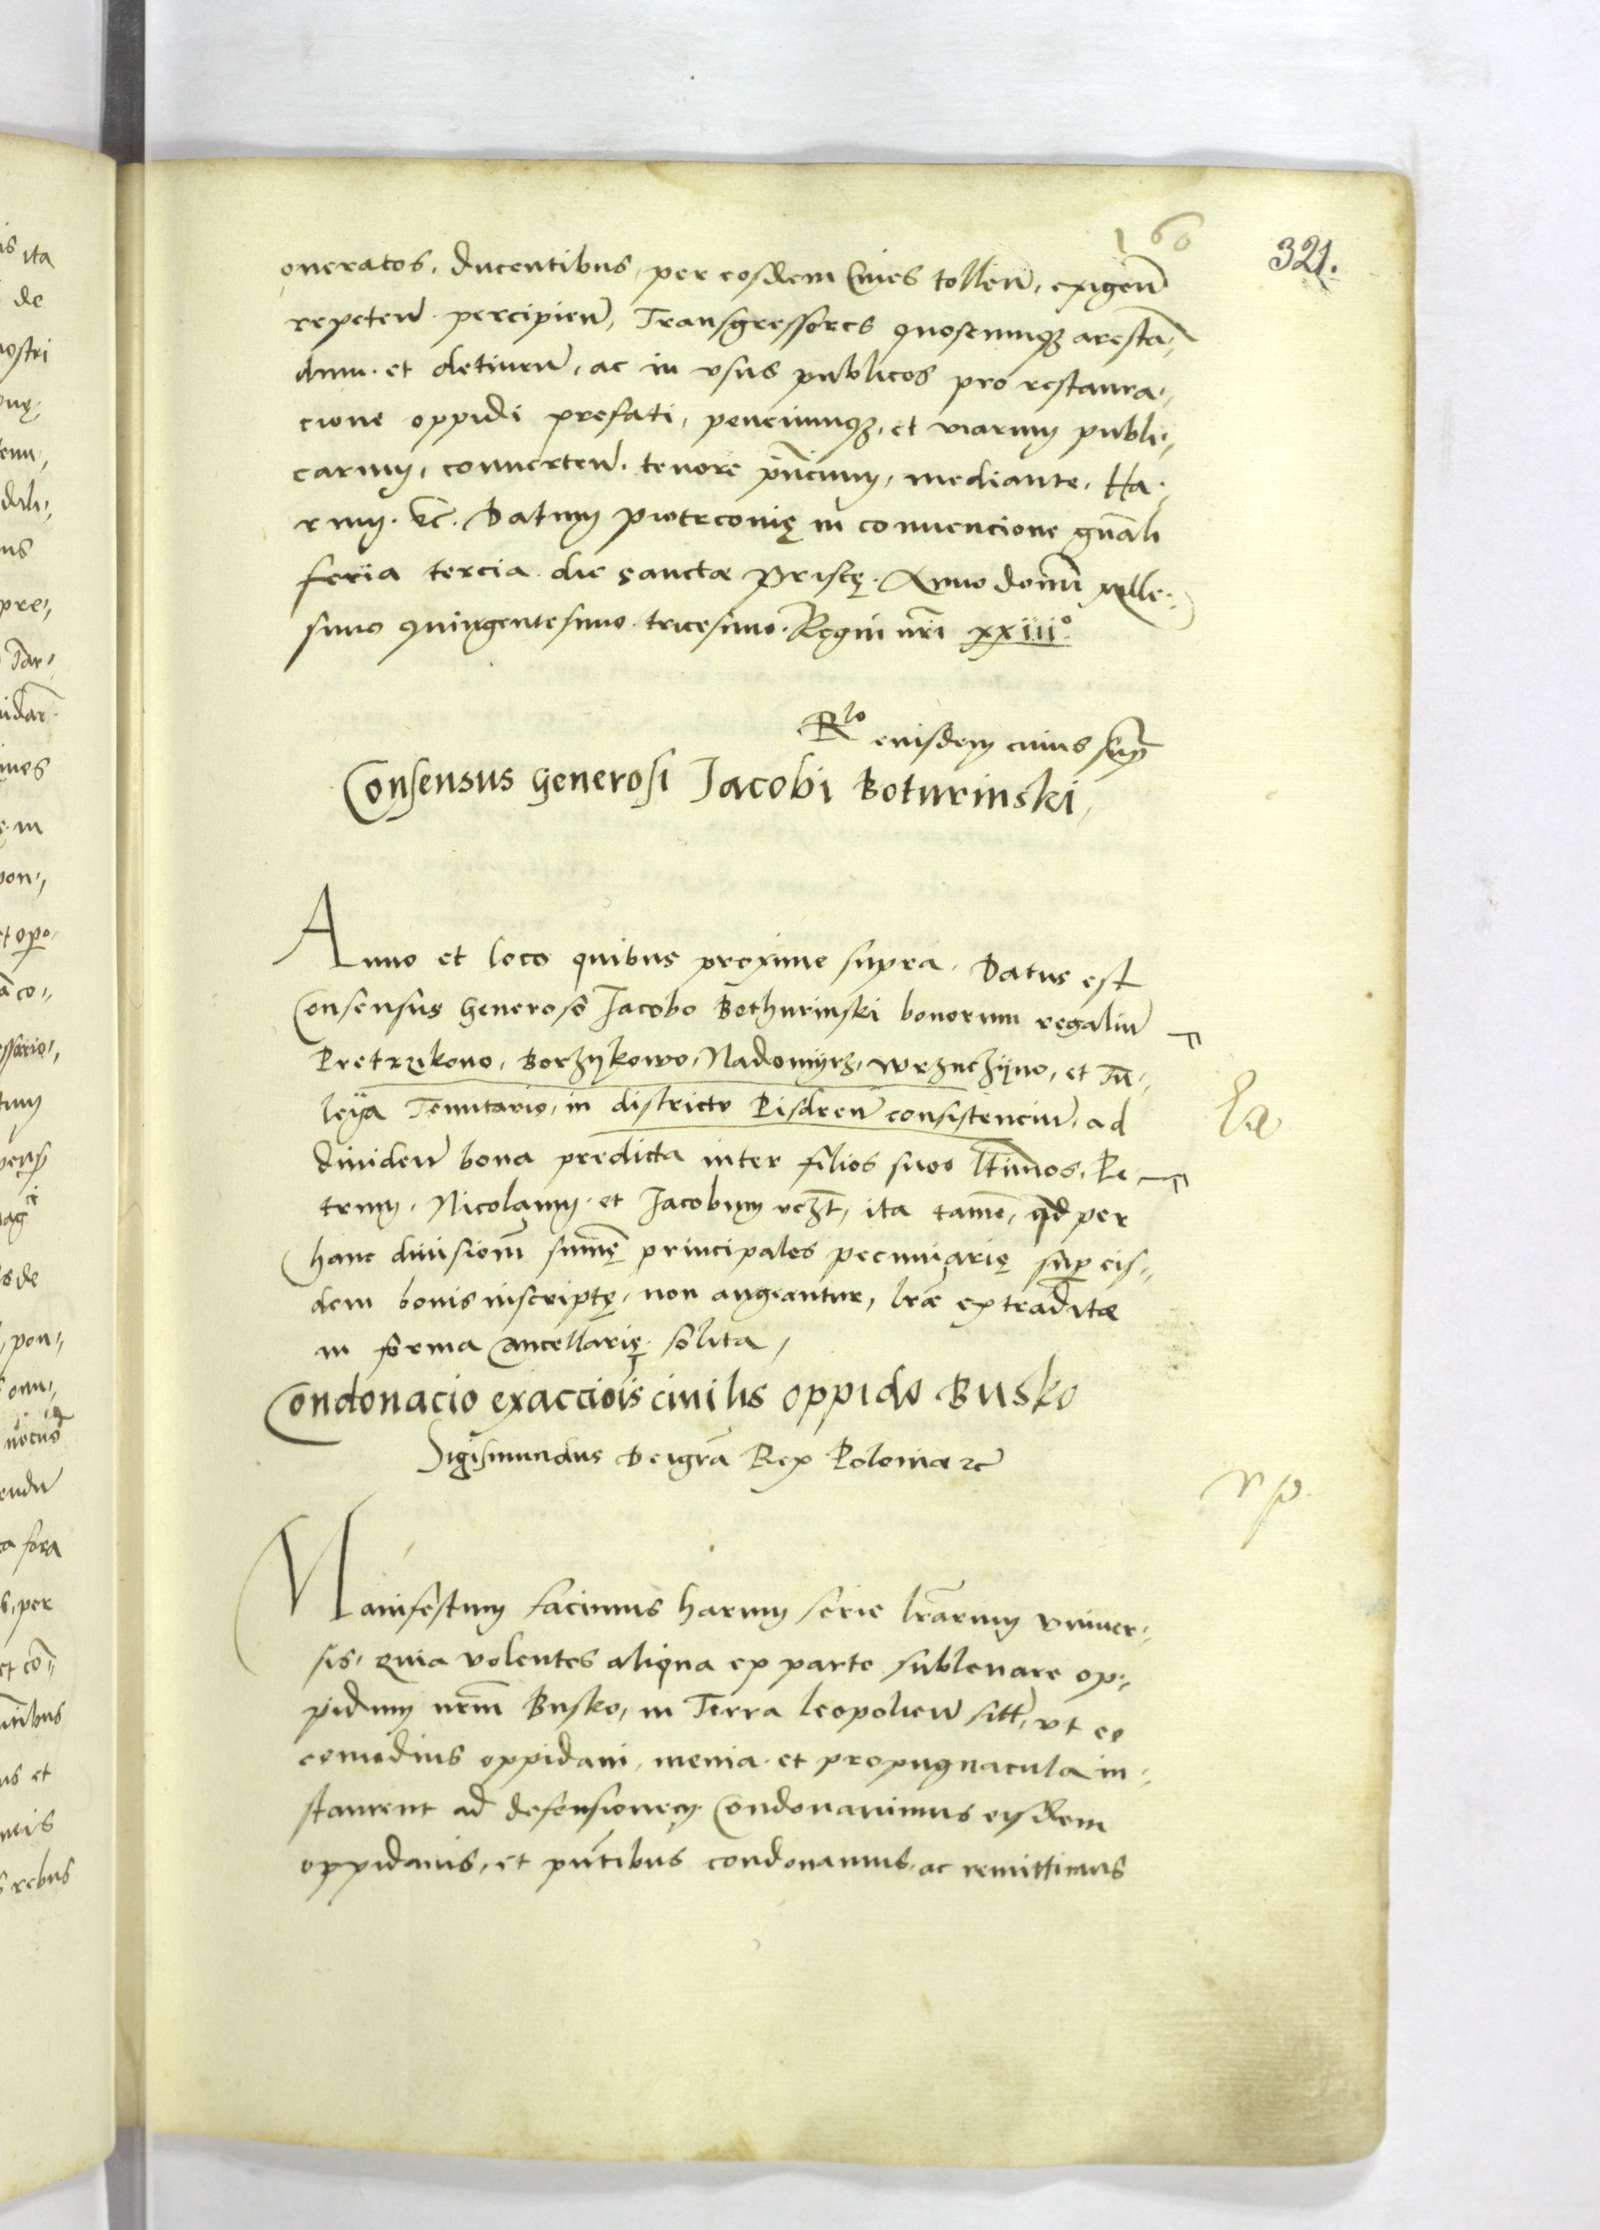 166
321.
oneratos, ducentibus, per eosdem Ciues tollen̄, exigen̄
repeten̄ percipien̄, Transgressores quoscunqꝫ arestan̄,,
dum et detinen̄, ac in vsus publicos pro restaura,,
cione oppidi prefati, penciumqꝫ, et viarum publi,,
carum, conuerten̄. tenore pn̄cium, mediante. Ha,,
rum. ꝛc̄. Datum piotrconię in conuencione gn̄ali
feria tercia die sanctæ Priscę. Anno domī mille,,
simo quingentesimo tricesimo. Regni nrī xxiiii°
R^lo eiusdem cuius sup̄
Consensus Generosi Jacobi Boturinski,
Anno et loco quibus proxime supra. Datus est
Consensus Generoso Jacobo Bothurinski bonorum regaliū
Pietrzikowo, Borzẏkowo, Nadomÿrz, wrzuczÿno, et Tu,,
leÿa Tenutario, in districtv Pisdren̄ consistenciū, ad
diuiden̄ bona predicta inter filios suos ltīmos. Pe,,
trum, Nicolaum et Jacobum vcꝫt, ita tamē, qd per
hanc diuisionē summę principales pecuniarię sup eis,,
dem bonis inscriptę, non augeantur, lr̄æ extraditæ
in forma Cancellarię solita,
Condonacio exacciois ciuilis oppido Busko
Sigismundus Dei grā Rex Poloniæ ꝛc
Manifestum facimus harum serie lrārum vniuer,,
sis, quia volentes aliqua ex parte subleuare op,,
pidum nrm̄ Busko, in Terra leopolien̄ sitū, vt eo
comodius oppidani, menia et propugnacula in,,
staurent ad defensionem Condonauimus eisdem
oppidanis, et pn̄tibus condonamus, ac remittimus